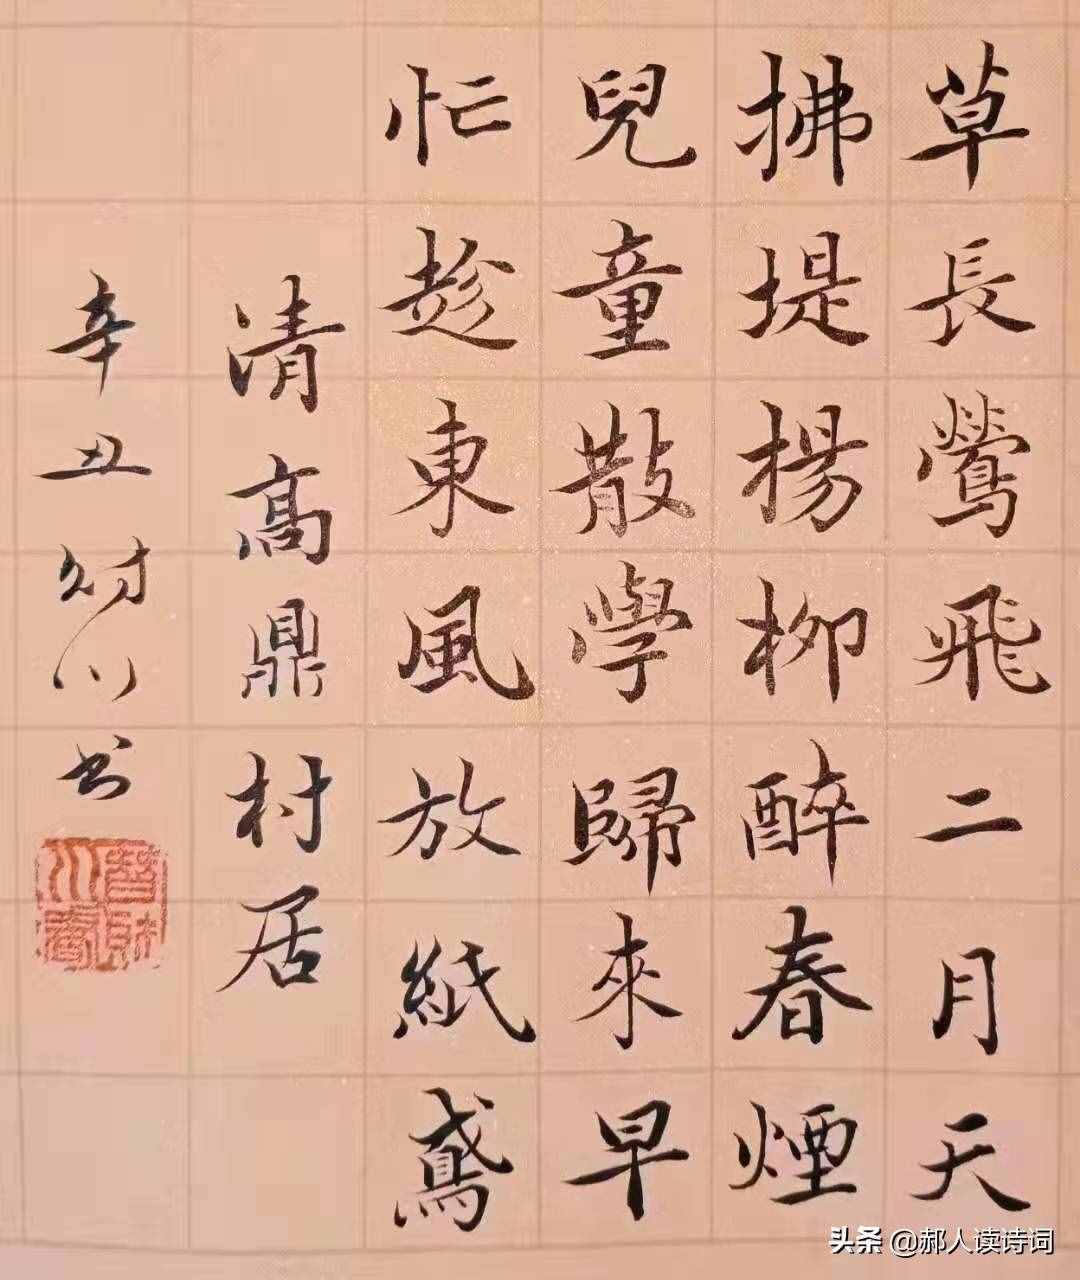 草長鶯飛二月天
拂堤揚柳醉春煙
兒童散學歸來早
忙趁東風放紙鳶
清高鼎村居
辛丑財川書
头条 @郝人读诗词